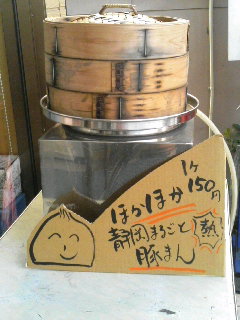 1ケ
150円
ほかほか
静岡まるごと
豚まん
熱